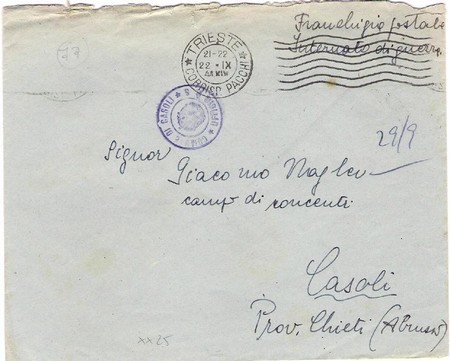 27
TRIESTE
21-22
22 · IX
CORRISP. PACCHI
Franchigia postale
Internato di guerra
DI CASOLI
29/9
Signor
Giacomo Nagler
camp di concentr.
Casoli
Prov. Chieti (Abruzzi)
xx25